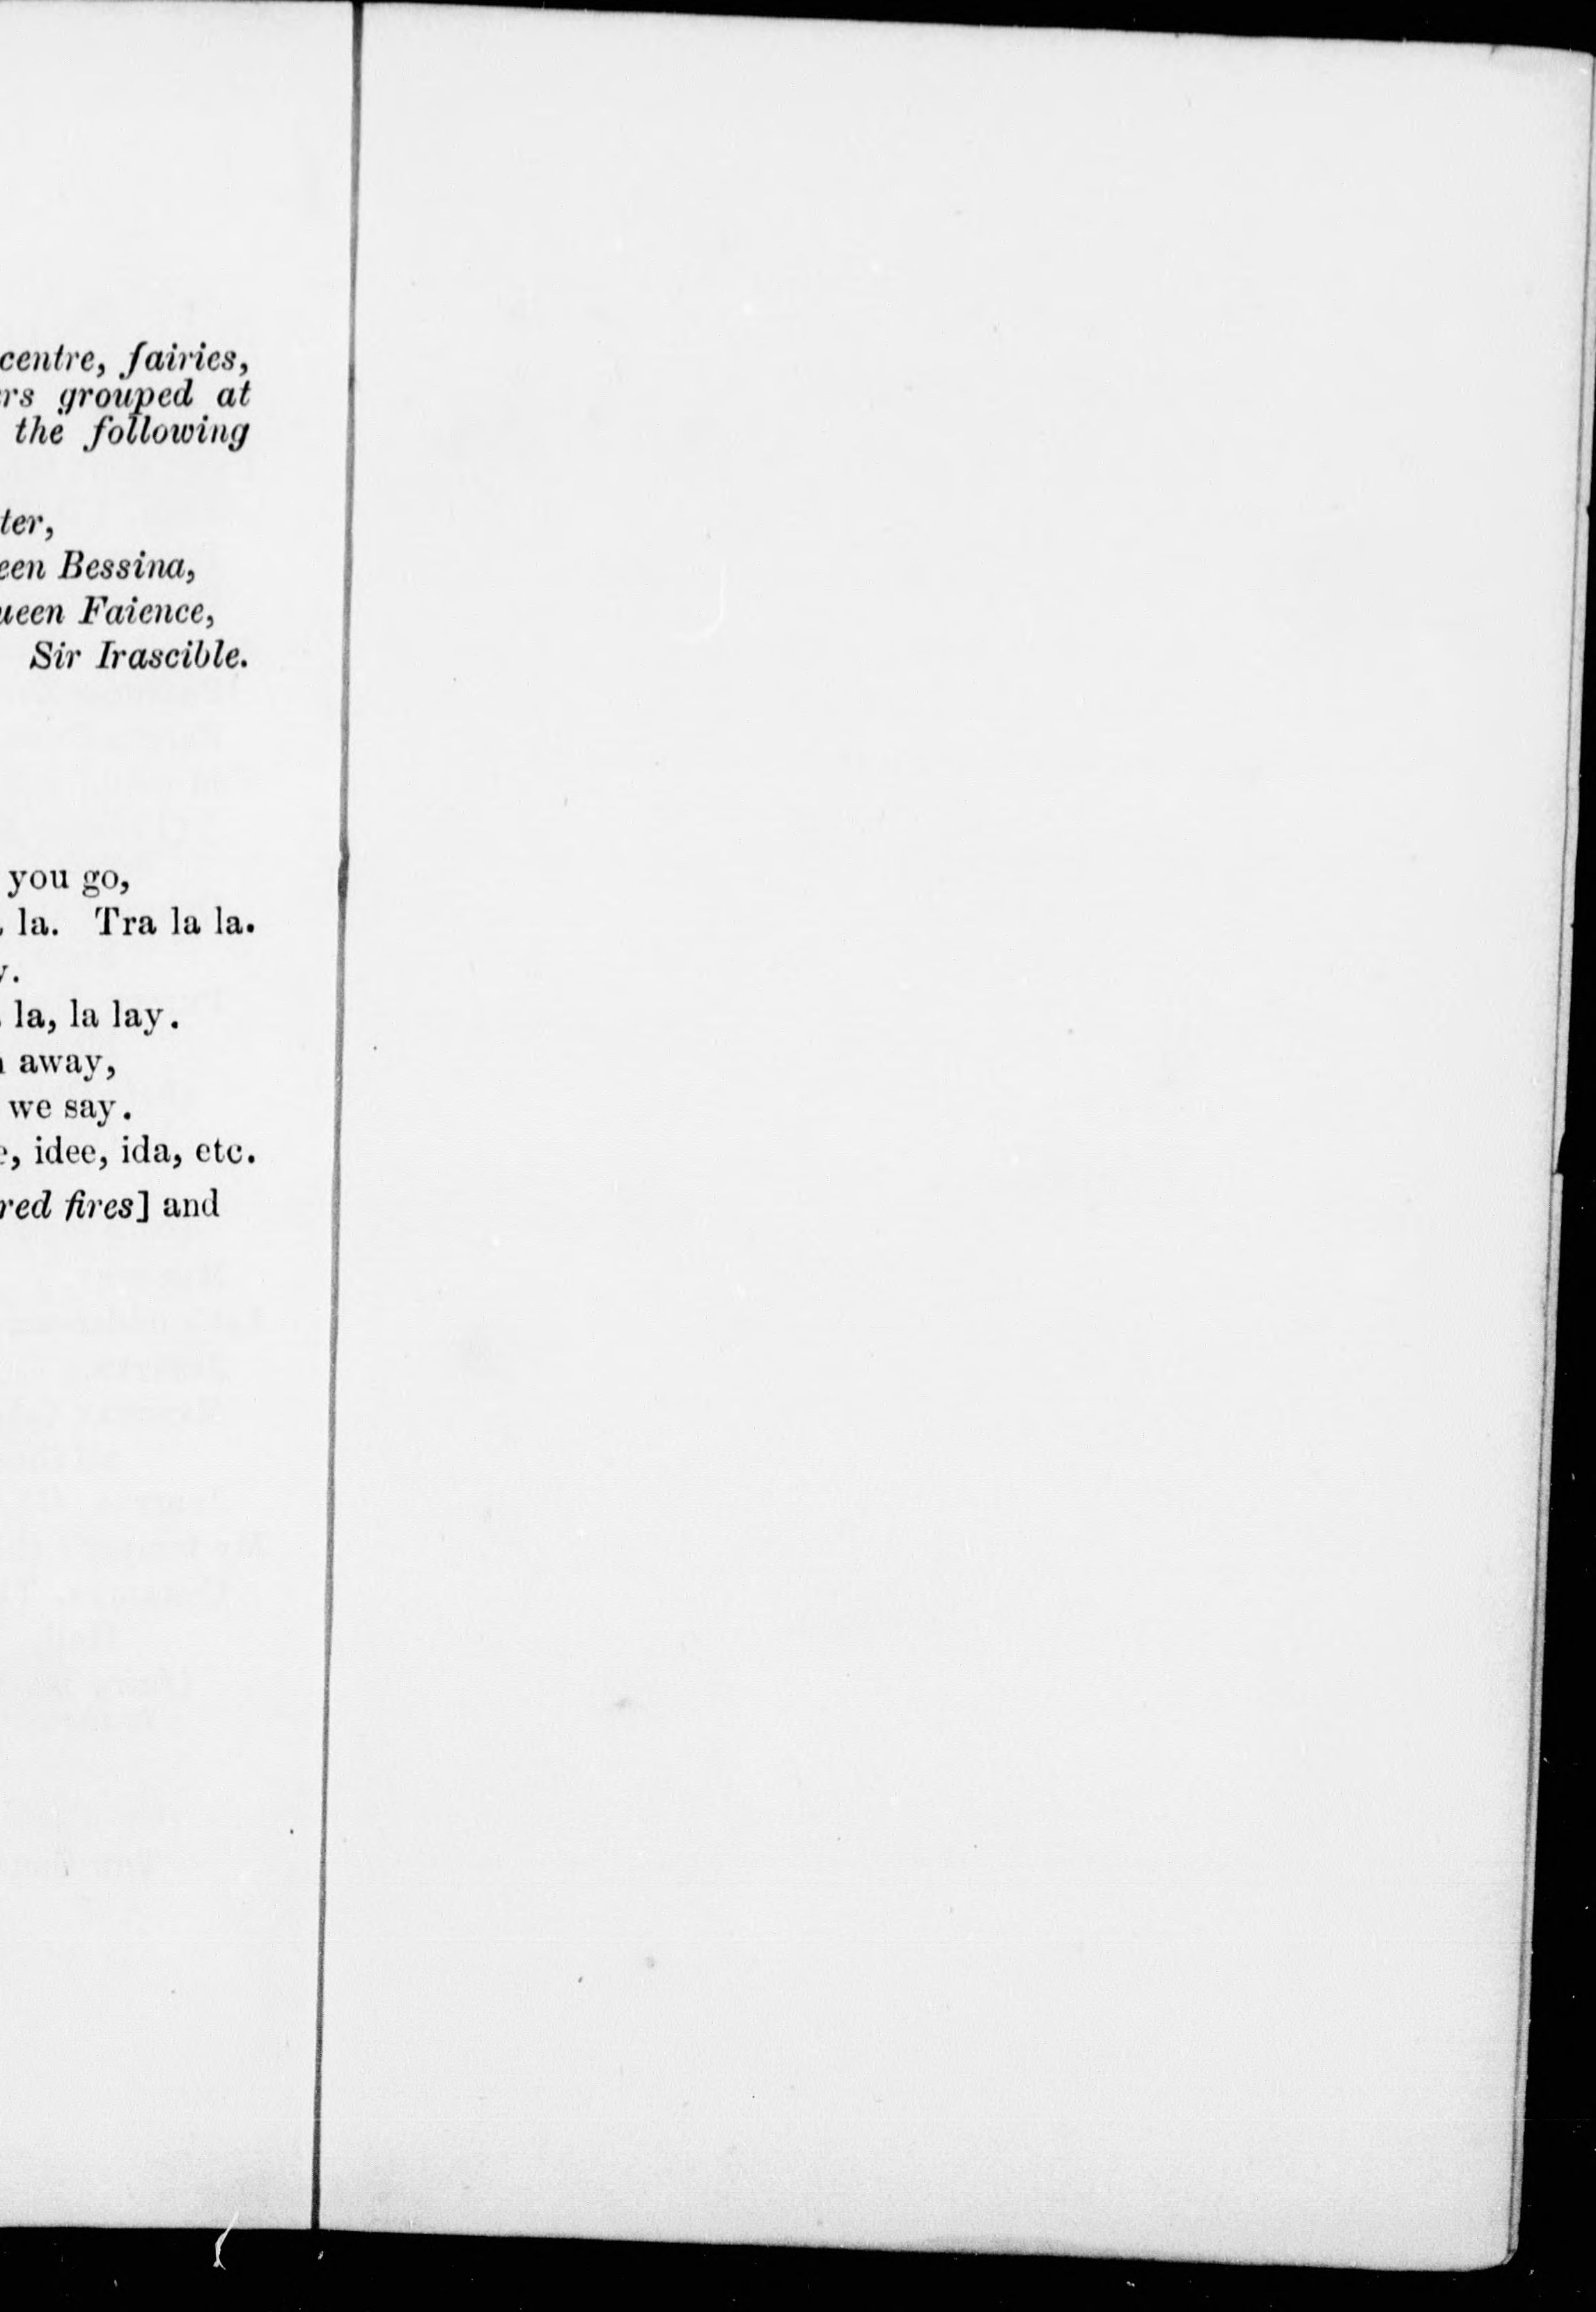 centre, fairies,
rs grouped at
the following
ter,
een Bessina,
ueen Faience,
Sir Irascible.
you go,
la. Tra la la.
y.
la, la lay.
away,
we say.
e, idee, ida, etc.
red fires] and